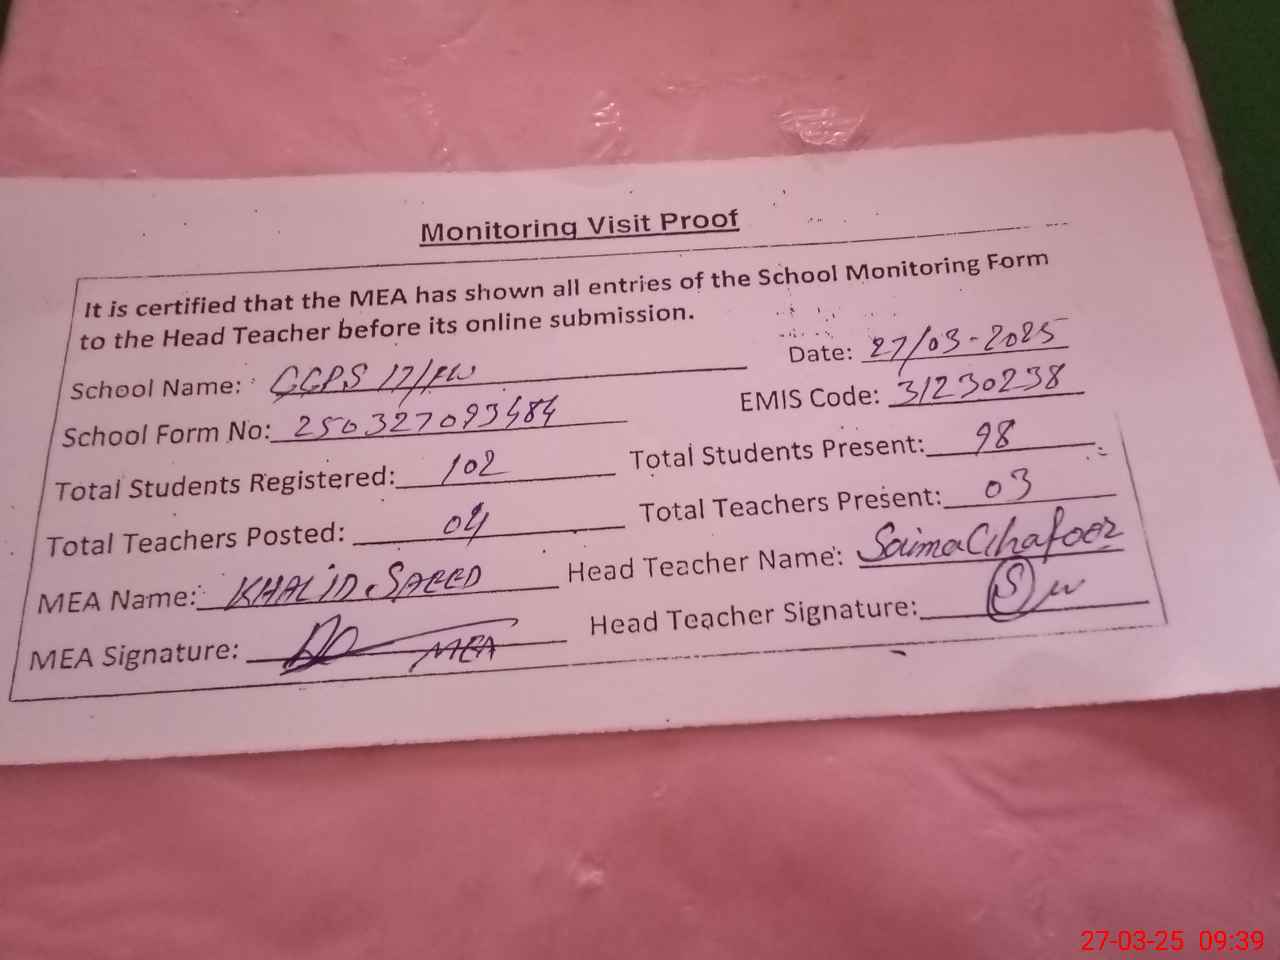 Monitoring Visit Proof
It is certified that the MEA has shown all entries of the School Monitoring Form
to the Head Teacher before its online submission.
School Name: GGPS 17/FW Date: 27/03-2025
School Form No: 250327093484 EMIS Code: 31230238
Total Students Registered: 102 Total Students Present: 98
Total Teachers Posted: 04 Total Teachers Present: 03
MEA Name: KHALID SAEED Head Teacher Name: Saima Ghafoor
MEA Signature: MEA Head Teacher Signature:
27-03-25 09:39